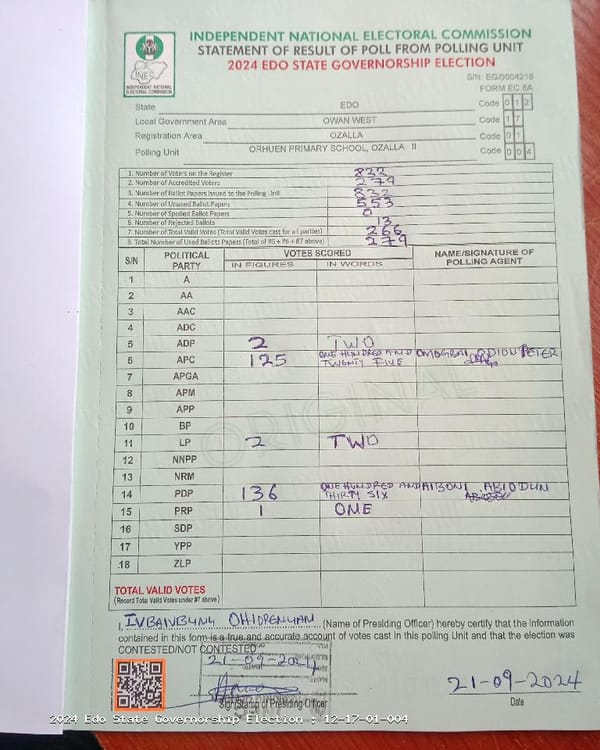 INDEPENDENT NATIONAL ELECTORAL COMMISSION
STATEMENT OF RESULT OF POLL FROM POLLING UNIT
2024 EDO STATE GOVERNORSHIP ELECTION
INEC
INDEPENDENT NATIONAL ELECTORAL COMMISSION
S/N: EG/0004216
FORM EC 8A
State EDO Code 0 1 2
Local Government Area OWAN WEST Code 1 7
Registration Area OZALLA Code 0 1
Polling Unit ORHUEN PRIMARY SCHOOL, OZALLA II Code 0 0 4
1. Number of Voters on the Register 832
2. Number of Accredited Voters 279
3. Number of Ballot Papers Issued to the Polling Unit 832
4. Number of Unused Ballot Papers 553
5. Number of Spoiled Ballot Papers 0
6. Number of Rejected Ballots 13
7. Number of Total Valid Votes (Total Valid Votes cast for all parties) 266
8. Total Number of Used Ballots Papers (Total of #5 + #6 + #7 above) 279
S/N POLITICAL PARTY VOTES SCORED NAME/SIGNATURE OF POLLING AGENT
IN FIGURES IN WORDS
1 A
2 AA
3 AAC
4 ADC
5 ADP 2 TWO
6 APC 125 ONE HUNDRED AND TWENTY FIVE ODION PETER
7 APGA
8 APM
9 APP
10 BP
11 LP 2 TWO
12 NNPP
13 NRM
14 PDP 136 ONE HUNDRED AND THIRTY SIX AIBONI ABIODUN
15 PRP 1 ONE
16 SDP
17 YPP
18 ZLP
ORIGINAL
TOTAL VALID VOTES
(Record Total Valid Votes under #7 above)
I, (Name of Presiding Officer) hereby certify that the information
contained in this form is a true and accurate account of votes cast in this polling Unit and that the election was
CONTESTED/NOT CONTESTED
21-09-2024
Sign/Stamp of Presiding Officer
21-09-2024
Date
2024 Edo State Governorship Election : 12-17-01-004